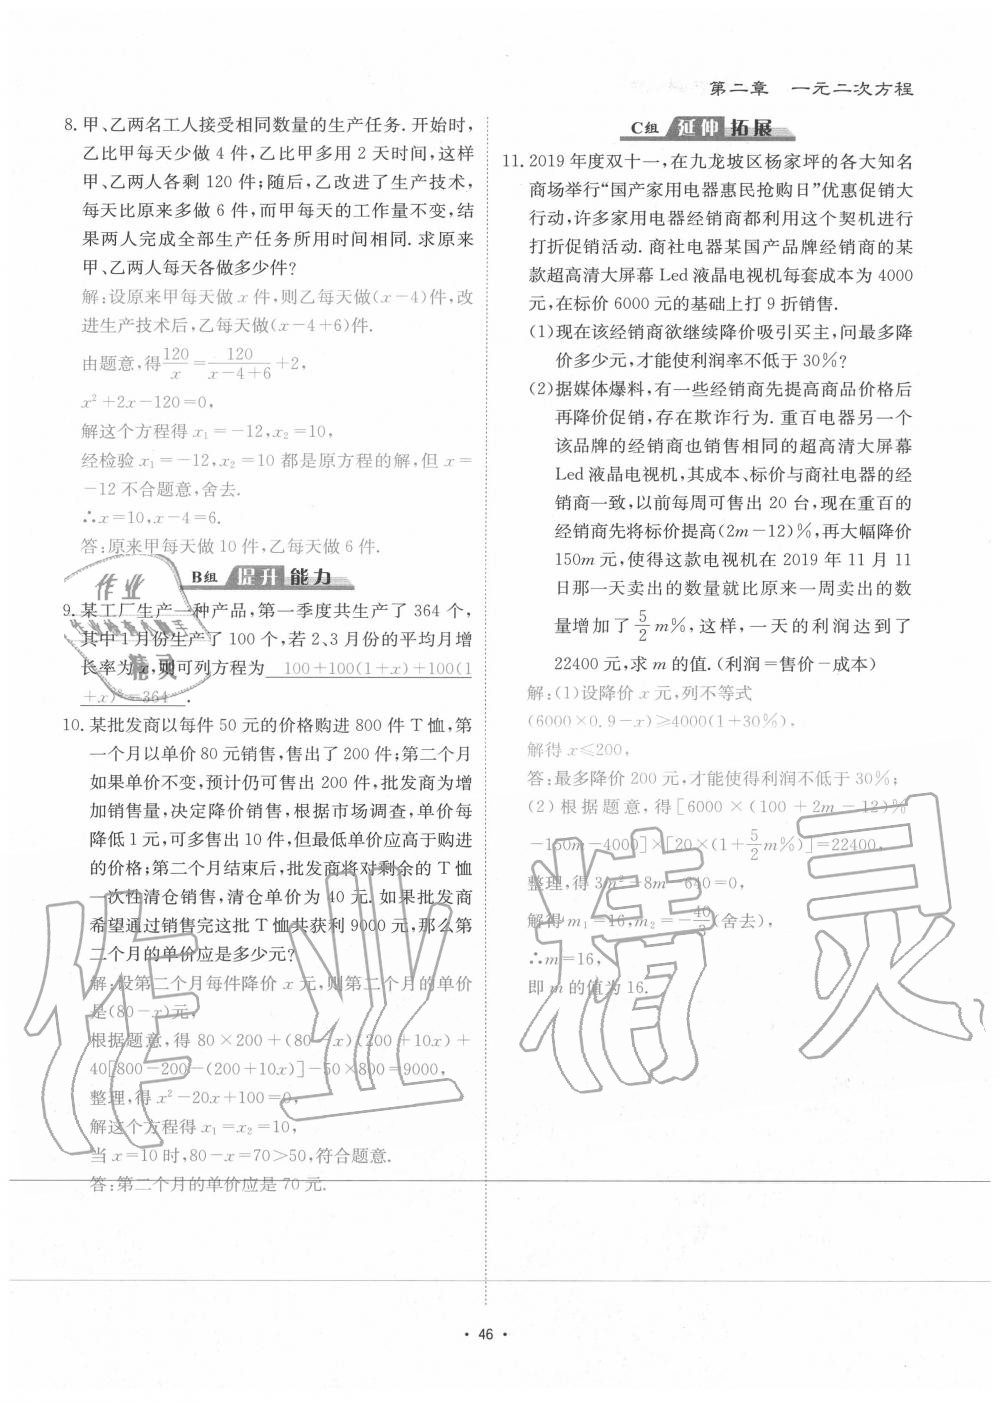 第二章　一元二次方程
8. 甲、乙两名工人接受相同数量的生产任务. 开始时,
乙比甲每天少做 4 件,乙比甲多用 2 天时间,这样
甲、乙两人各剩 120 件;随后,乙改进了生产技术,
每天比原来多做 6 件,而甲每天的工作量不变,结
果两人完成全部生产任务所用时间相同. 求原来
甲、乙两人每天各做多少件?
解:设原来甲每天做 x 件,则乙每天做(x-4)件,改
进生产技术后,乙每天做(x-4+6)件.
由题意,得120/x=120/(x-4+6)+2,
x²+2x-120=0,
解这个方程得 x₁=-12,x₂=10,
经检验 x₁=-12,x₂=10 都是原方程的解,但 x=
-12 不合题意,舍去.
∴x=10,x-4=6.
答:原来甲每天做 10 件,乙每天做 6 件.
B组 提升 能力
9. 某工厂生产一种产品,第一季度共生产了 364 个,
其中 1 月份生产了 100 个,若 2、3 月份的平均月增
长率为 x,则可列方程为 100+100(1+x)+100(1
+x)²=364.
10. 某批发商以每件 50 元的价格购进 800 件 T 恤,第
一个月以单价 80 元销售,售出了 200 件;第二个月
如果单价不变,预计仍可售出 200 件,批发商为增
加销售量,决定降价销售,根据市场调查,单价每
降低 1 元,可多售出 10 件,但最低单价应高于购进
的价格;第二个月结束后,批发商将对剩余的 T 恤
一次性清仓销售,清仓单价为 40 元. 如果批发商
希望通过销售完这批 T 恤共获利 9000 元,那么第
二个月的单价应是多少元?
解:设第二个月每件降价 x 元,则第二个月的单价
是(80-x)元,
根据题意,得 80×200+(80-x)(200+10x)+
40[800-200-(200+10x)]-50×800=9000,
整理,得 x²-20x+100=0,
解这个方程得 x₁=x₂=10,
当 x=10 时,80-x=70>50,符合题意.
答:第二个月的单价应是 70 元.
C组 延伸 拓展
11. 2019 年度双十一,在九龙坡区杨家坪的各大知名
商场举行“国产家用电器惠民抢购日”优惠促销大
行动,许多家用电器经销商都利用这个契机进行
打折促销活动. 商社电器某国产品牌经销商的某
款超高清大屏幕 Led 液晶电视机每套成本为 4000
元,在标价 6000 元的基础上打 9 折销售.
(1)现在该经销商欲继续降价吸引买主,问最多降
价多少元,才能使利润率不低于 30%?
(2)据媒体爆料,有一些经销商先提高商品价格后
再降价促销,存在欺诈行为. 重百电器另一个
该品牌的经销商也销售相同的超高清大屏幕
Led 液晶电视机,其成本、标价与商社电器的经
销商一致,以前每周可售出 20 台,现在重百的
经销商先将标价提高(2m-12)%,再大幅降价
150m 元,使得这款电视机在 2019 年 11 月 11
日那一天卖出的数量就比原来一周卖出的数
量增加了5/2m%,这样,一天的利润达到了
22400 元,求 m 的值. (利润=售价-成本)
解:(1)设降价 x 元,列不等式
(6000×0.9-x)≥4000(1+30%),
解得 x≤200,
答:最多降价 200 元,才能使得利润不低于 30%;
(2)根据题意,得[6000×(100+2m-12)%
-150m-4000]×[20×(1+5/2m%)]=22400,
整理,得 3m²+8m-640=0,
解得 m₁=16,m₂=-40/3(舍去),
∴m=16,
即 m 的值为 16.
作业
精灵
作业精灵
· 46 ·